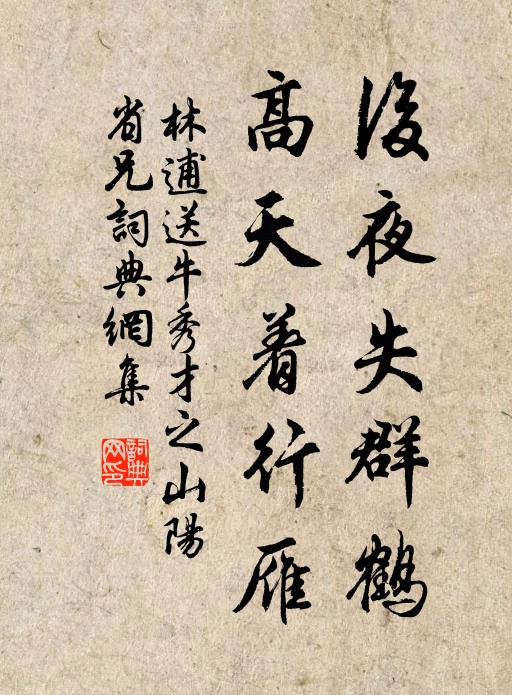 後夜失群鶴
高天着行雁
林逋送牛秀才之山陽
省兄詞典網集
詞典网印